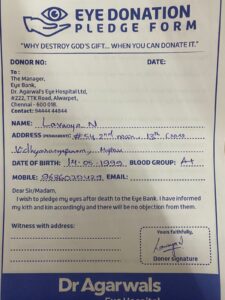 EYE DONATION
PLEDGE FORM
"WHY DESTROY GOD'S GIFT... WHEN YOU CAN DONATE IT."
DONOR NO: DATE:
To :
The Manager,
Eye Bank,
Dr. Agarwal's Eye Hospital Ltd,
#222, TTK Road, Alwarpet,
Chennai - 600 018.
Contact: 94444 44844
NAME: Lavanya N
ADDRESS (PERMANENT): #54 2nd main, 13th Cross
Vidhyaranyapuram, Mysuru
DATE OF BIRTH: 14.05.1999 BLOOD GROUP: A+
MOBILE: EMAIL:
Dear Sir/Madam,
I wish to pledge my eyes after death to the Eye Bank. I have informed
my kith and kin accordingly and there will be no objection from them.
Witness with address: Yours faithfully,
Lavanya N
Donor signature
Dr Agarwals
Eye Hospital